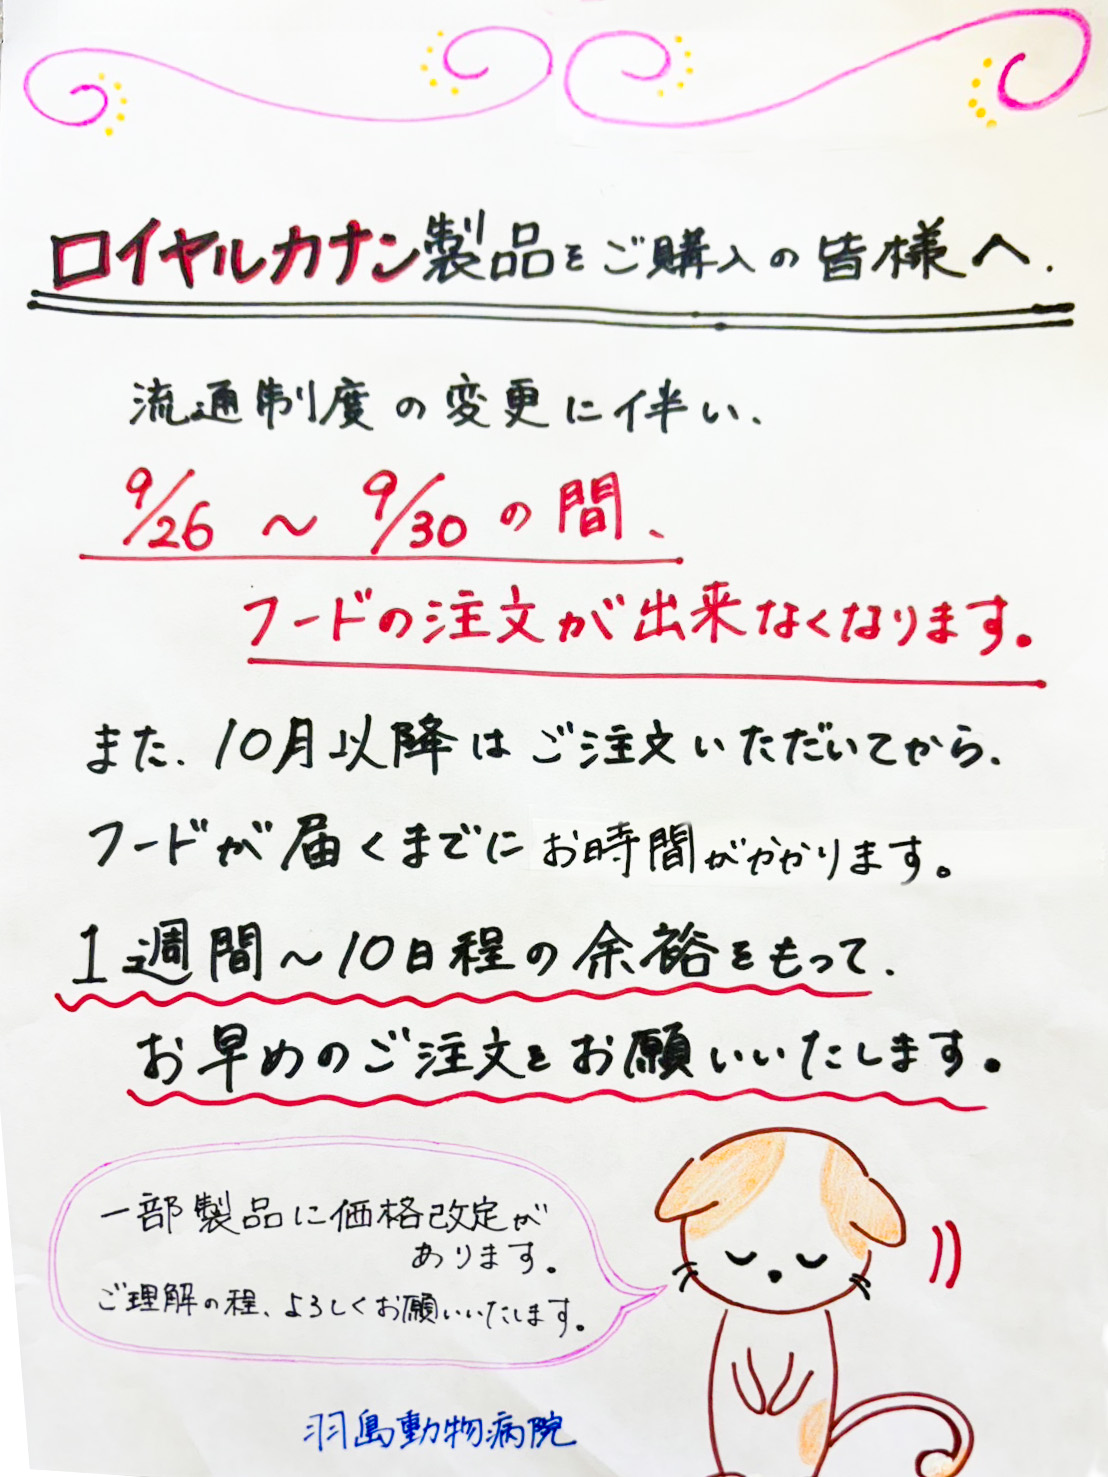 ロイヤルカナン製品をご購入の皆様へ.
流通制度の変更に伴い、
9/26 ～ 9/30 の間、
フードの注文が出来なくなります。
また、10月以降はご注文いただいてから、
フードが届くまでにお時間がかかります。
1週間～10日程の余裕をもって、
お早めのご注文をお願いいたします。
一部製品に価格改定が
あります。
ご理解の程、よろしくお願いいたします。
羽島動物病院